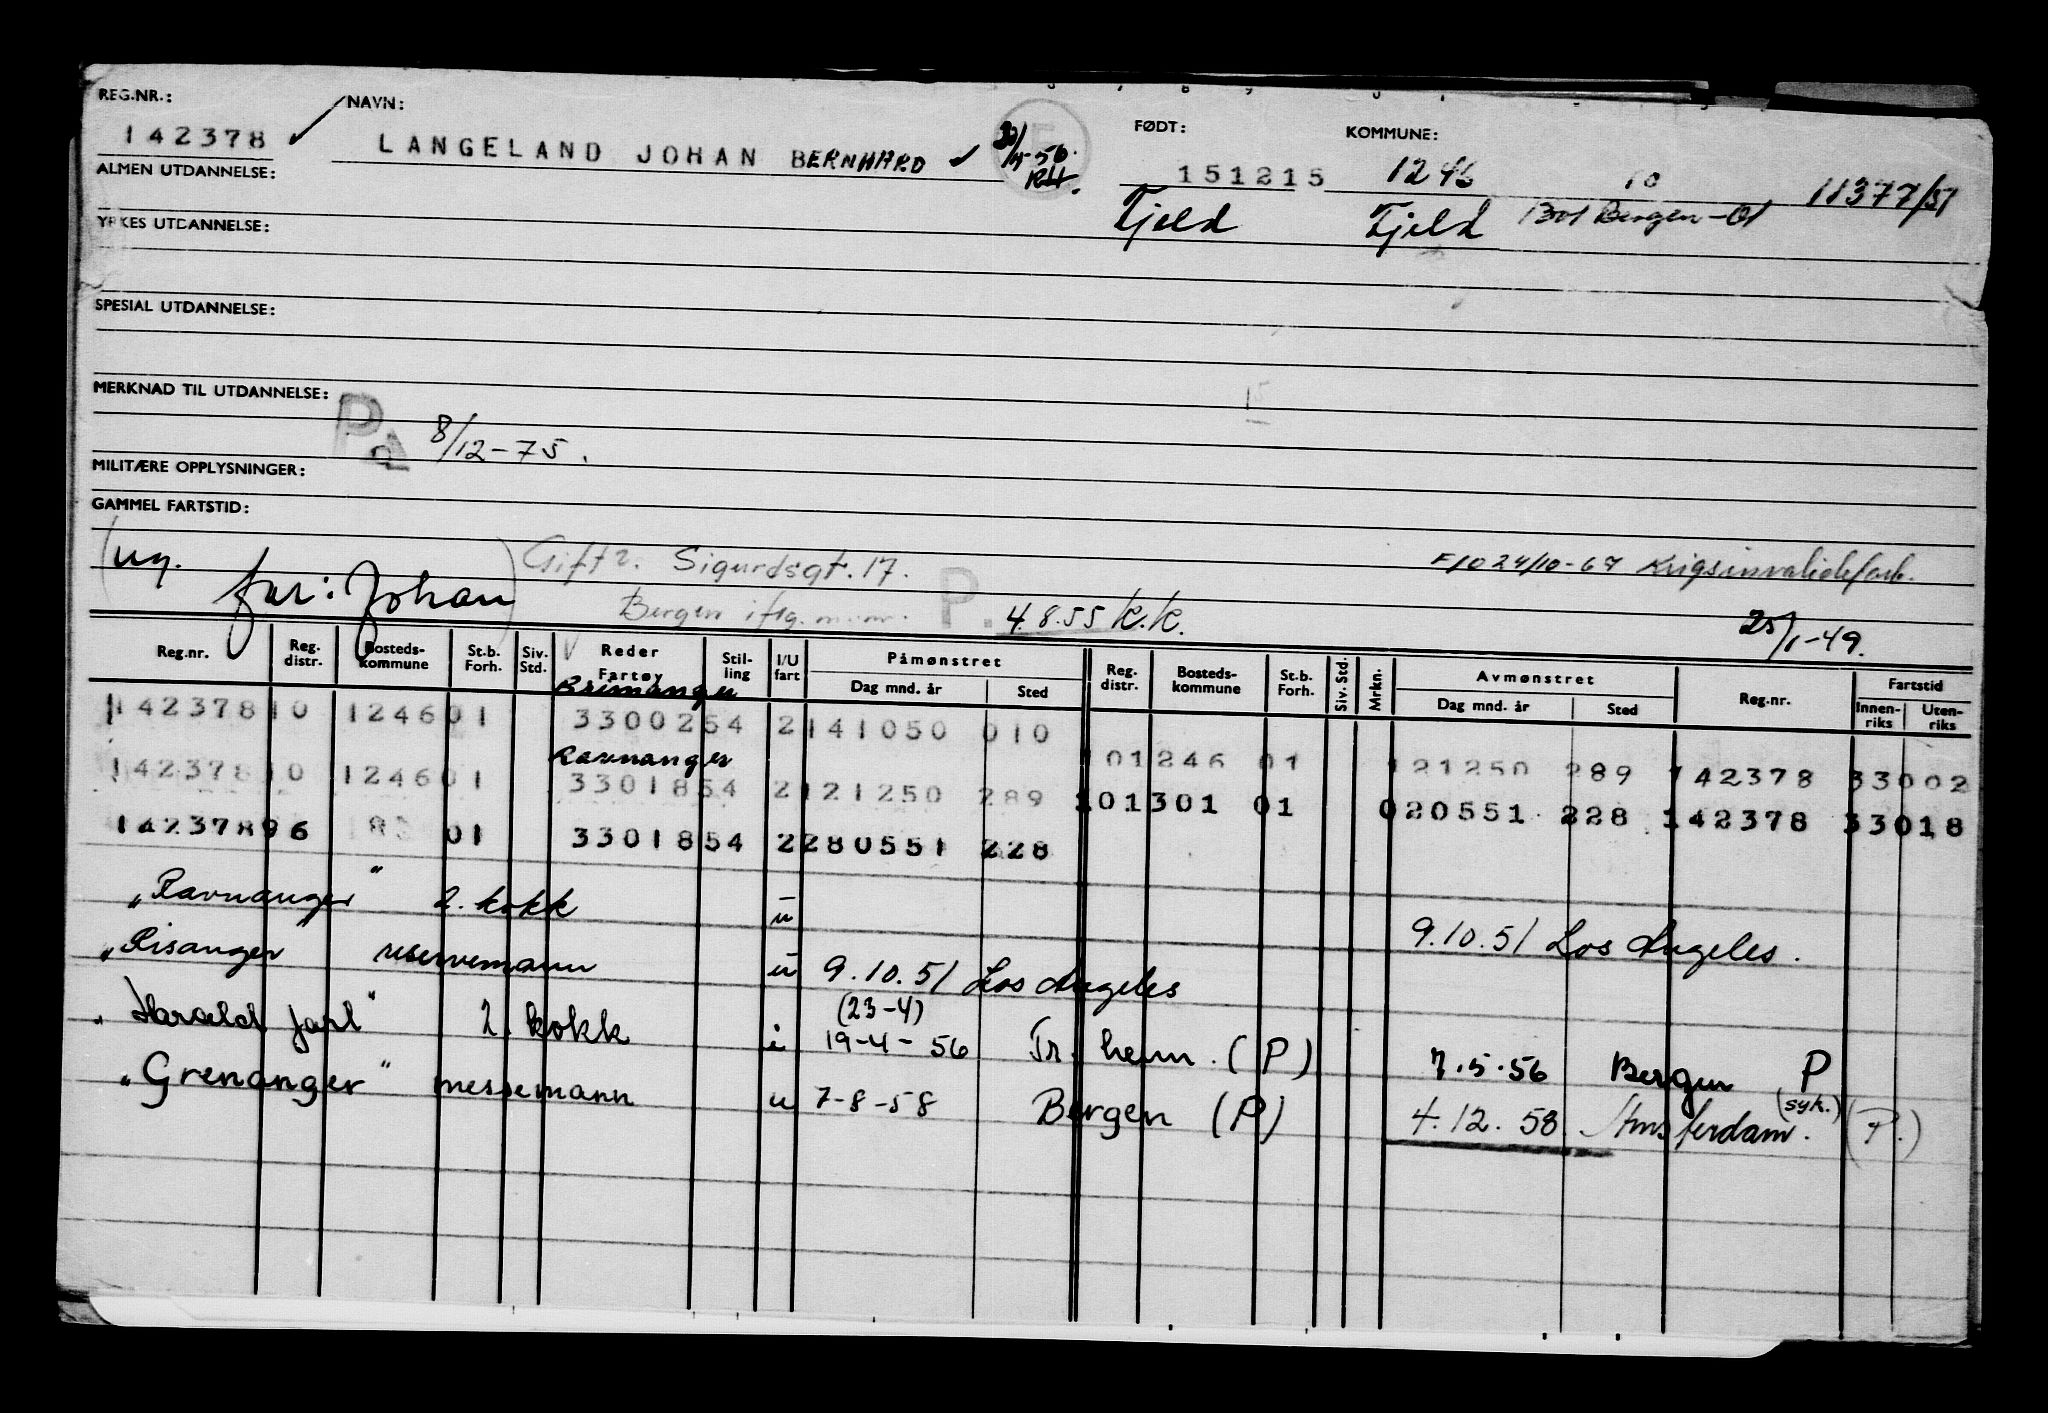 REG.NR.: NAVN: FØDT: KOMMUNE:
142378 LANGELAND JOHAN BERNHARD 151215 1246 10 11377/51
Fjeld Fjeld Bergen-01
ALMEN UTDANNELSE:
YRKES UTDANNELSE:
SPESIAL UTDANNELSE:
MERKNAD TIL UTDANNELSE:
PA 8/12-75.
MILITÆRE OPPLYSNINGER:
GAMMEL FARTSTID:
(ug. far: Johan) Gift Sigurdsgt. 17. F/O 24/10-67 Krigsinvalideforb.
Bergen iflg. m.m. P. 4.8.55 K.K. 25/1-49.
Reg.nr. Reg. distr. Bosteds-kommune St.b. Forh. Siv. Std. Reder Fartøy Stil-ling I/U fart Påmønstret Dag mnd. år Sted Reg. distr. Bosteds-kommune St.b. Forh. Siv. Std. Mrkn. Avmønstret Dag mnd. år Sted Reg.nr. Fartstid Innen-riks Uten-riks
Brimanger
142378 10 1246 01 33002 54 2 141050 010 101246 01 121250 289 142378 33002
Ravnanger
142378 10 1246 01 33018 54 2 121250 289 101301 01 020551 228 142378 33018
142378 96 01 33018 54 2 280551 228
"Ravnanger" 2. kokk u 9.10.51 Los Angeles.
"Risanger reservemann u 9.10.51 Los Angeles
(23-4)
"Harald Jarl" 2. kokk i 19-4-56 Tr.heim. (P) 7.5.56 Bergen P
"Grenanger" messemann u 7-8-58 Bergen (P) 4.12.58 Amsterdam. (syk.) (P.)